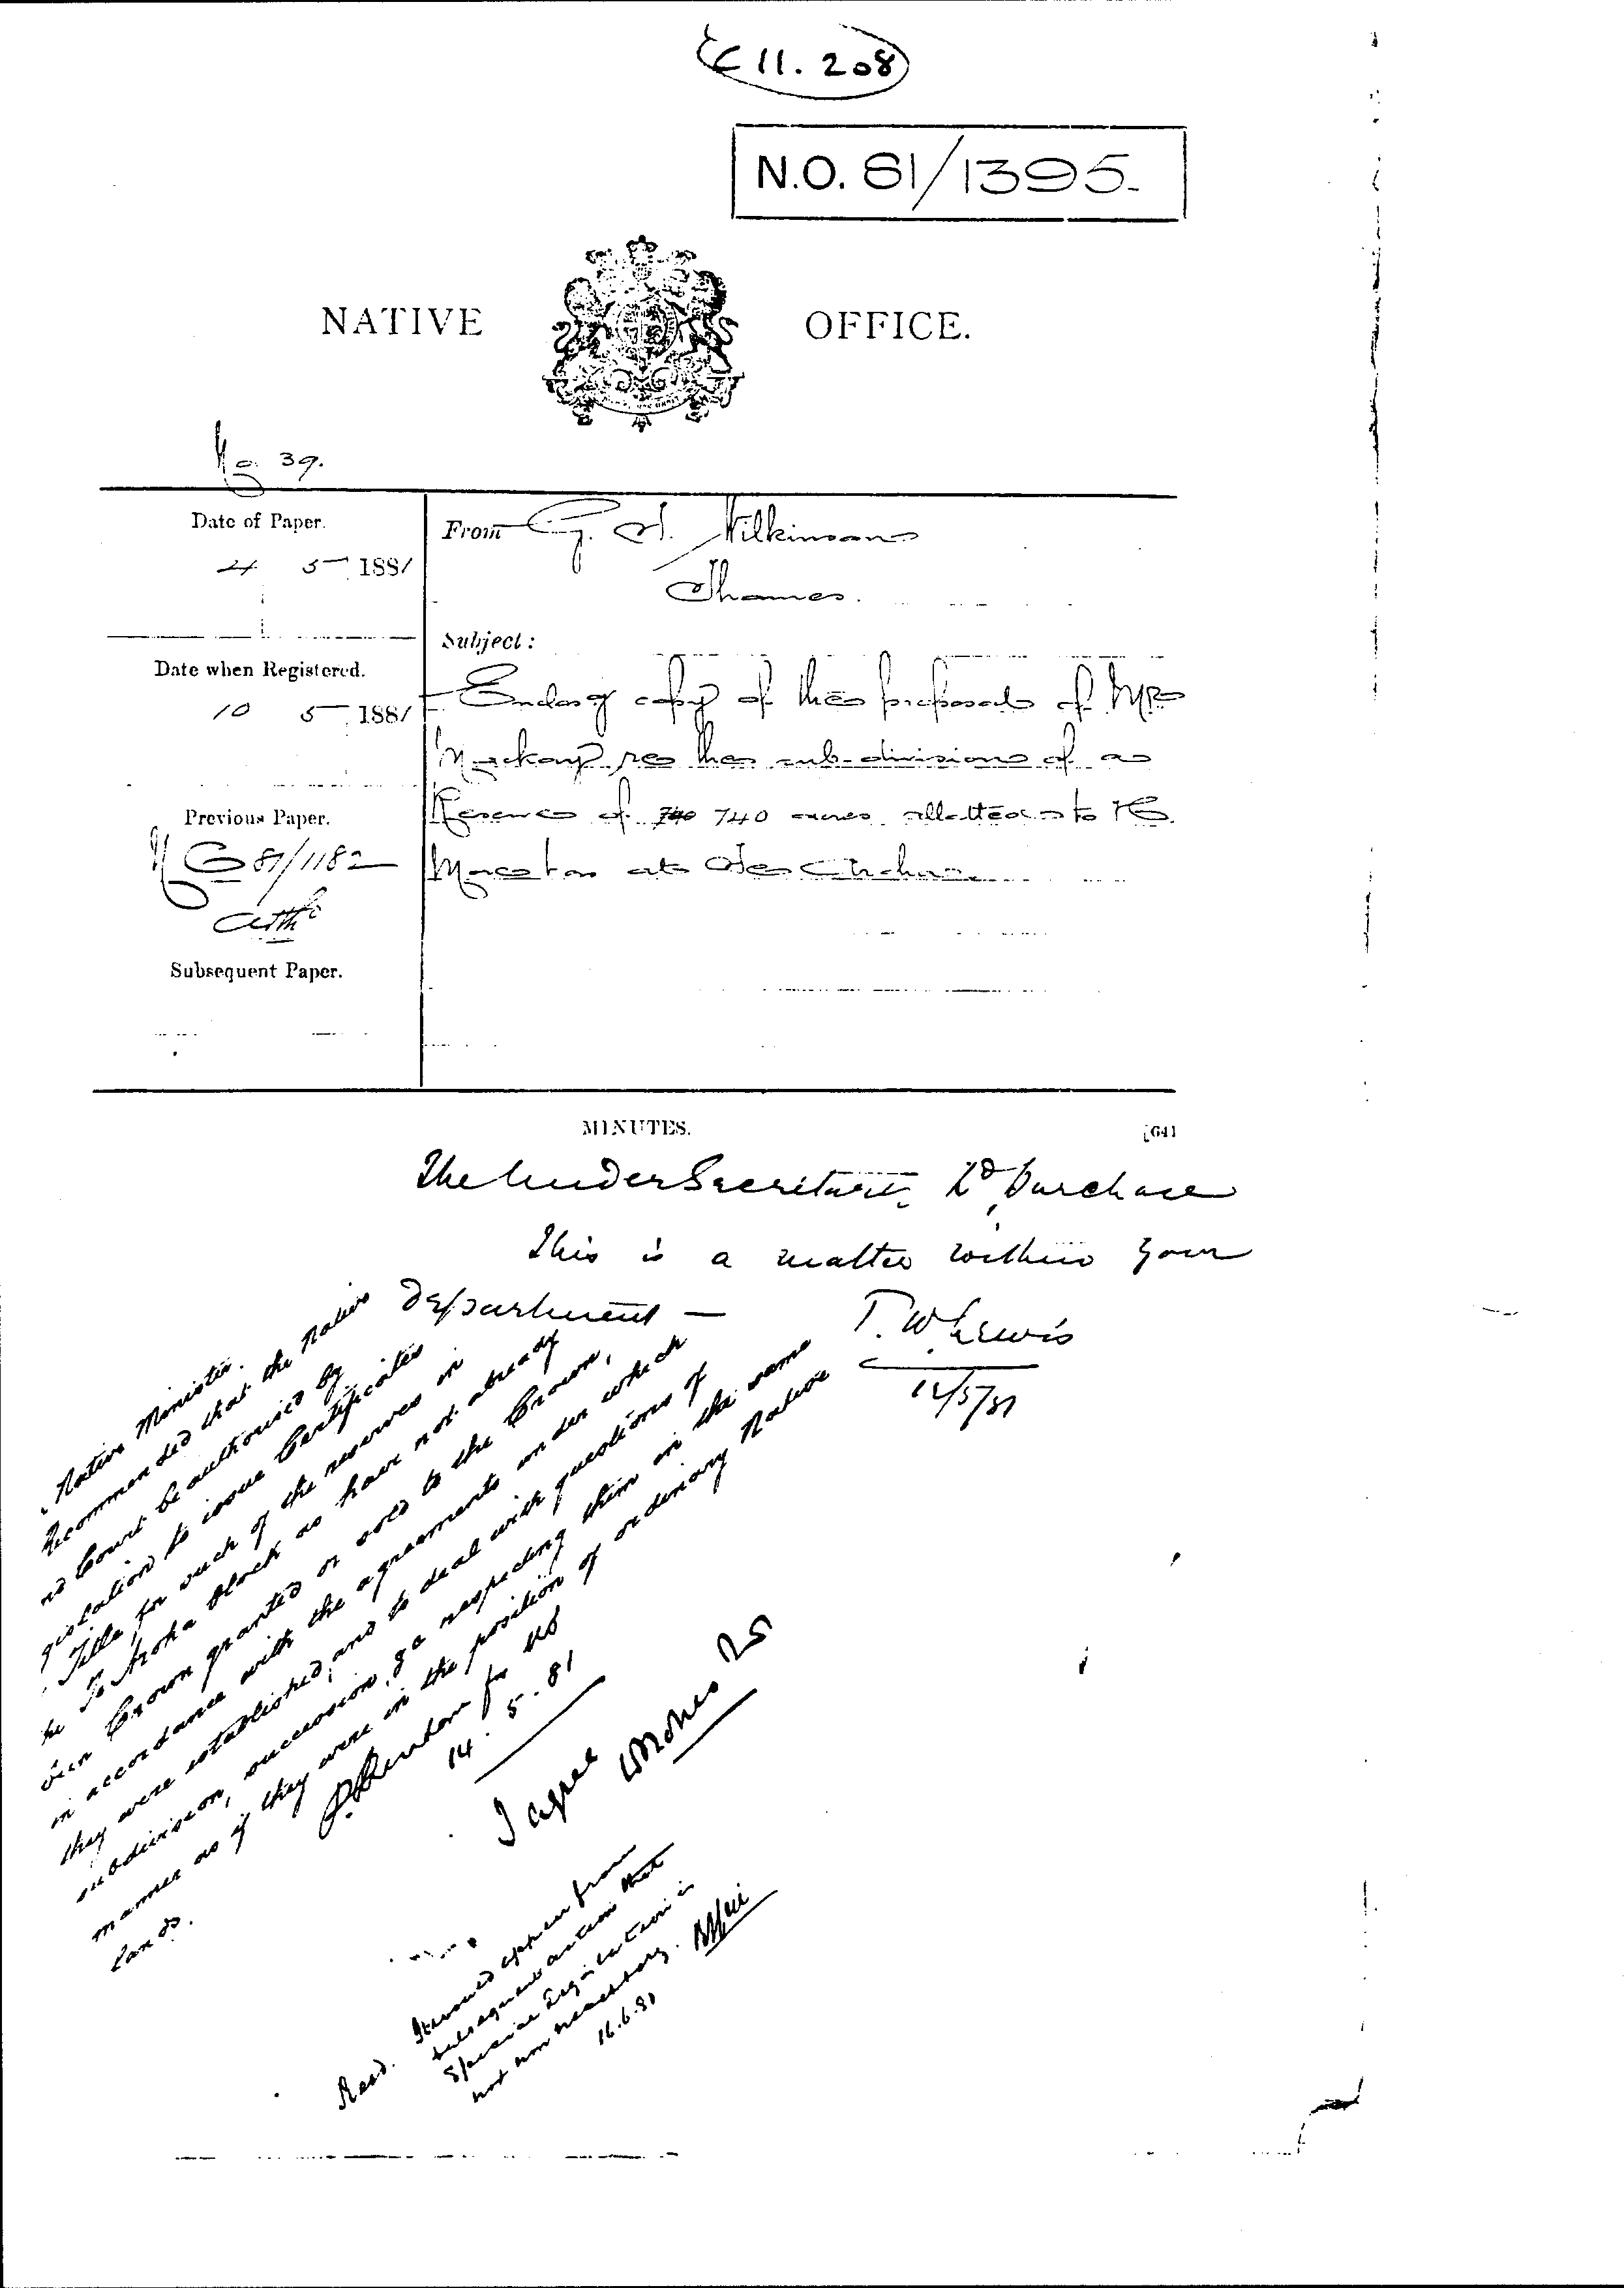 E 11. 208
N.O. 81/1395.
NATIVE OFFICE.
No. 39.
Date of Paper.
4 5 1881
From G. T. Wilkinson
Thames.
Date when Registered.
10 5 1881
Subject:
Enclosg copy of the proposals of Mr
Mackay re the sub-division of a
Reserve of 740 740 acres allotted to
at Te Aroha
Previous Paper.
81/1182
Subsequent Paper.
MINUTES.
[641
The Under Secretary Ld Purchase
This is a matter within your
Department —
T. W. Lewis
12/5/81
Native Minister.
Recommended that the Native
Court be authorised by
to issue Certificates
Title for such of the reserves in
Te Aroha Block as have not already
been Crown granted or sold to the Crown,
in accordance with the agreements under which
they were established, and to deal with questions of
subdivision, succession, &c respecting them in the same
manner as if they were in the position of ordinary Native
lands.
14.5.81
I agree
It would appear from
subsequent action that
Special Legislation is
not now necessary.
16.6.81